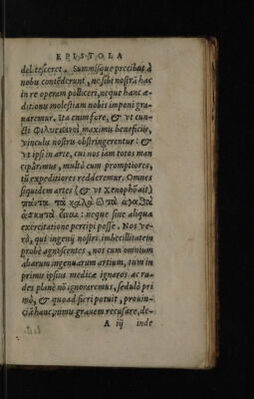 EPISTOLA
delitesceret. Summisque precibus à
nobis contēderunt, ne sibi nostrā hac
in re operam polliceri, neque hanc æ-
ditionis molestiam nobis imponi gra-
uaremur. Ita enim fore, & vt cun-
cti Φιλιατροὶ maximis beneficijs,
vinculis nostris obstringerentur: &
vt ipsi in arte, cui nos iam totos man
cipârimus, multò cum promptiores,
tū expeditiores redderemur. Omnes
siquidem artes (& vt xenophōn ait)
πάντα τὰ καλὰ καὶ τὰ ἀγαθὰ
ἀσκητὰ εἶναι: neque sine aliqua
exercitatione percipi posse. Nos ve-
rò, qui ingenij nostri imbecillitatem
probè agnoscentes, nos cum omnium
aliarum ingenuarum artium, tum in
primis ipsius medicæ ignaros ac ru-
des planè nō ignoraremus, sedulò pri
mò, & quoad fieri potuit, prouin-
ciā hanc, nimis grauem recusare, de-
A iij inde